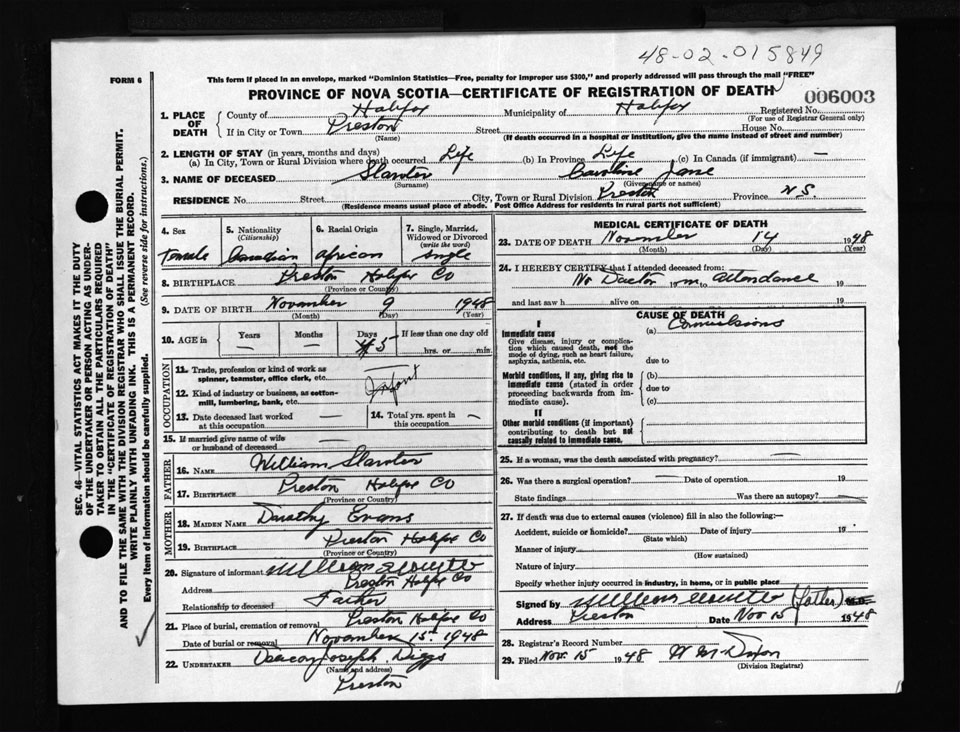 48-02-015849
FORM 6
This form if placed in an envelope, marked "Dominion Statistics—Free, penalty for improper use $300," and properly addressed will pass through the mail "FREE"
PROVINCE OF NOVA SCOTIA—CERTIFICATE OF REGISTRATION OF DEATH
006003
1. PLACE OF DEATH
County of Halifax Municipality of Halifax Registered No.
(For use of Registrar General only)
If in City or Town Preston Street House No.
(Name) (If death occurred in a hospital or institution, give the name instead of street and number)
2. LENGTH OF STAY (in years, months and days)
(a) In City, Town or Rural Division where death occurred Life (b) In Province Life (c) In Canada (if immigrant) —
3. NAME OF DECEASED Caroline Jane
(Surname) (Given name or names)
RESIDENCE No. Street City, Town or Rural Division Preston Province N.S.
(Residence means usual place of abode. Post Office Address for residents in rural parts not sufficient)
4. Sex 5. Nationality 6. Racial Origin 7. Single, Married, Widowed or Divorced
(Citizenship) (write the word)
Female Canadian African Single
8. BIRTHPLACE Preston Halifax Co
(Province or County)
9. DATE OF BIRTH November 9 1948
(Month) (Day) (Year)
10. AGE in Years Months Days If less than one day old
— — 5 hrs. or min.
OCCUPATION
11. Trade, profession or kind of work as spinner, teamster, office clerk, etc.
12. Kind of industry or business, as cotton-mill, lumbering, bank, etc. Infant
13. Date deceased last worked at this occupation —
14. Total yrs. spent in this occupation —
15. If married give name of wife or husband of deceased —
FATHER
16. NAME William
17. BIRTHPLACE Preston Halifax Co
(Province or Country)
MOTHER
18. MAIDEN NAME Dorothy Evans
19. BIRTHPLACE Preston Halifax Co
(Province or Country)
20. Signature of informant William
Address Preston Halifax Co
Relationship to deceased Father
21. Place of burial, cremation or removal Preston Halifax Co
Date of burial or removal November 15th 1948
22. UNDERTAKER Deacon Joseph Diggs
(Name and address)
Preston
MEDICAL CERTIFICATE OF DEATH
23. DATE OF DEATH November 14 1948
(Month) (Day) (Year)
24. I HEREBY CERTIFY that I attended deceased from:
No Doctor 19 in attendance 19
and last saw h alive on 19
CAUSE OF DEATH
I
Immediate cause (a) Convulsions
Give disease, injury or complication which caused death, not the mode of dying, such as heart failure, asphyxia, asthenia, etc.
due to
Morbid conditions, if any, giving rise to immediate cause (stated in order proceeding backwards from immediate cause).
(b)
due to
(c)
II
Other morbid conditions (if important) contributing to death but not causally related to immediate cause.
25. If a woman, was the death associated with pregnancy? —
26. Was there a surgical operation? — Date of operation 19
State findings Was there an autopsy? —
27. If death was due to external causes (violence) fill in also the following:—
Accident, suicide or homicide? Date of injury 19
(State which)
Manner of injury
(How sustained)
Nature of injury
Specify whether injury occurred in industry, in home, or in public place
Signed by William (Father) M.D.
Address Preston Date Nov 15 1948
28. Registrar's Record Number
29. Filed Nov. 15 1948 W M Dixon
(Division Registrar)
SEC. 46—VITAL STATISTICS ACT MAKES IT THE DUTY
OF THE UNDERTAKER OR PERSON ACTING AS UNDER-
TAKER TO OBTAIN ALL THE PARTICULARS REQUIRED
IN THE "CERTIFICATE OF REGISTRATION OF DEATH"
AND TO FILE THE SAME WITH THE DIVISION REGISTRAR WHO SHALL ISSUE THE BURIAL PERMIT.
WRITE PLAINLY WITH UNFADING INK. THIS IS A PERMANENT RECORD.
Every item of information should be carefully supplied. (See reverse side for instructions.)